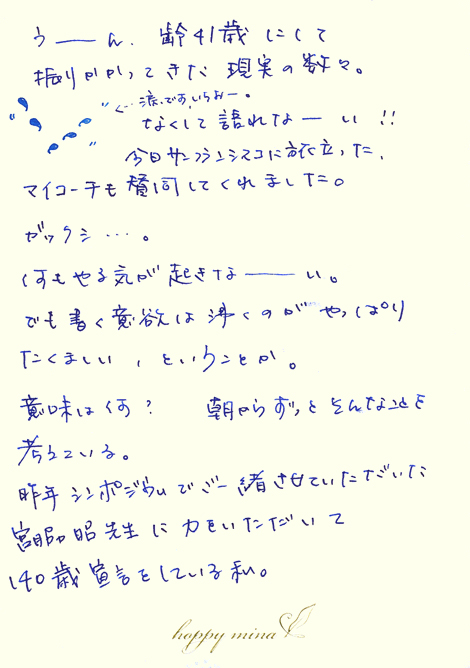 うーん、齢41歳にして
振りかかってきた現実の数々。
"        "←…涙です、いちおー。
なくして語れなーい!!
今日サンフランシスコに旅立った、
マイコーチも賛同してくれました。
ガックシ…。
何もやる気が起きなーい。
でも書く意欲は沸くのが やっぱり
たくましい、ということか。
意味は何? 朝からずっとそんなことを
考えている。
昨年シンポジウムでご一緒させていただいた
昭先生に力をいただいて
140歳宣言をしている私。
happy mina